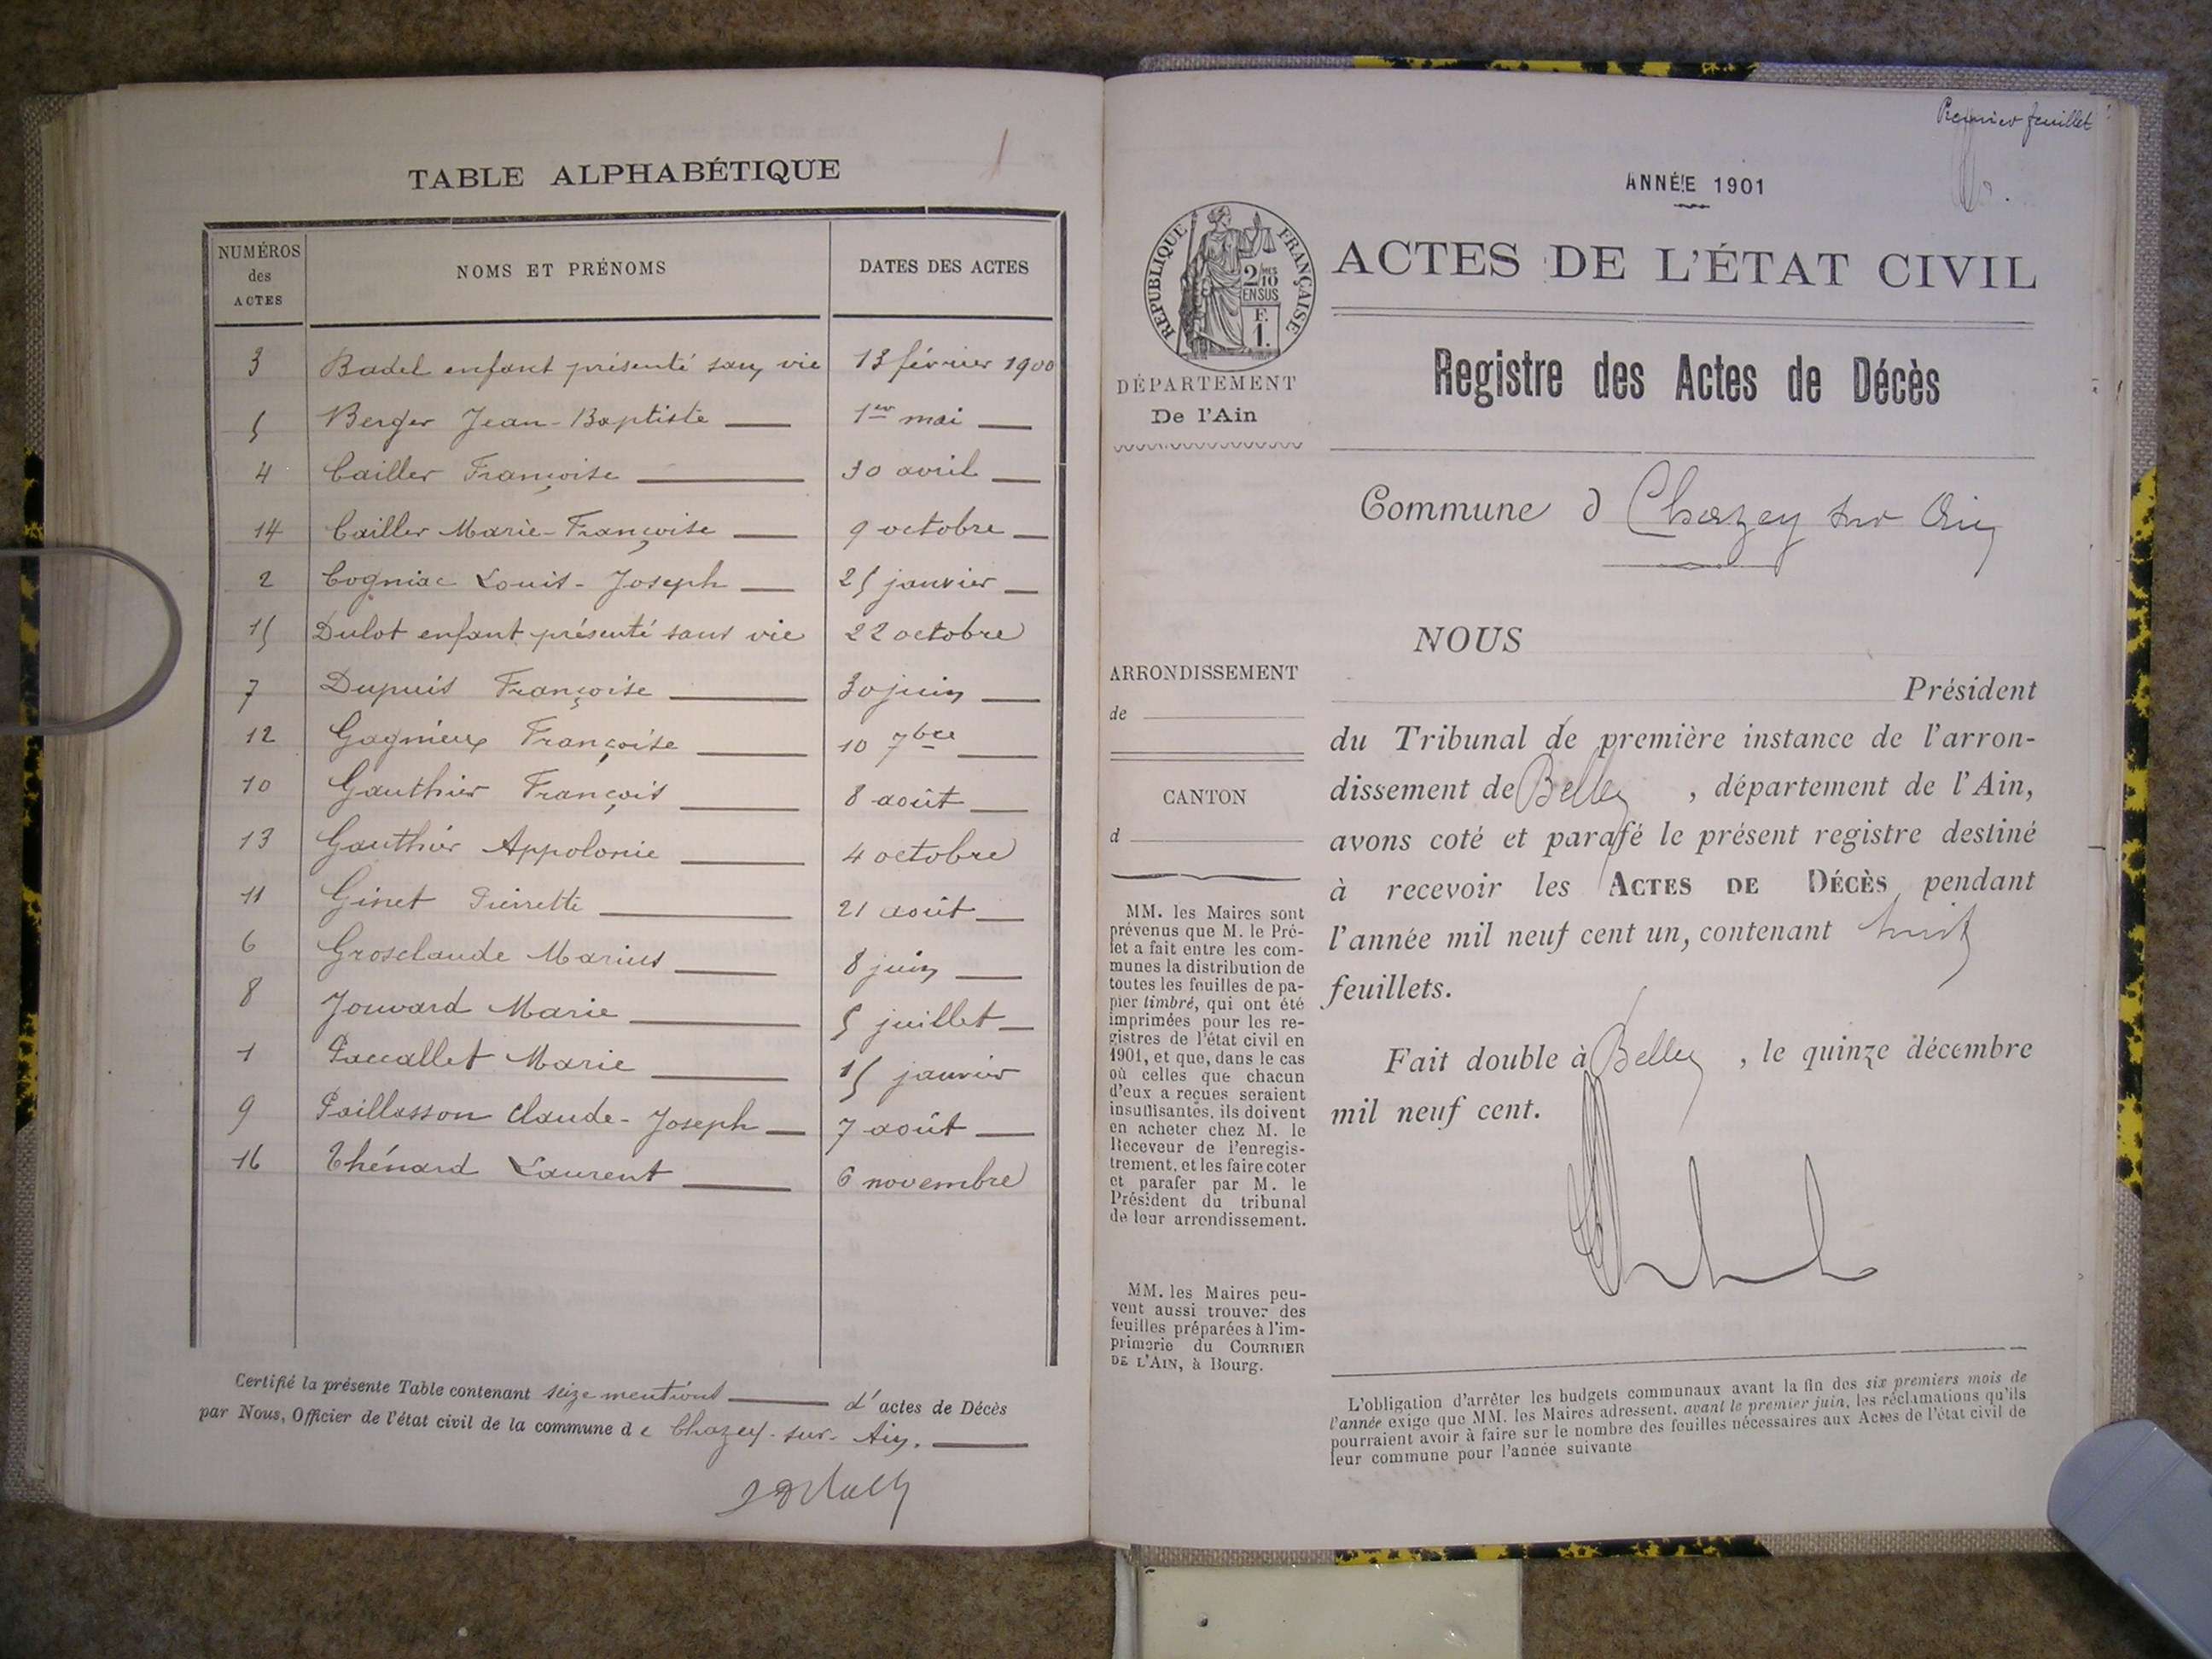 TABLE ALPHABÉTIQUE
NUMÉROS des ACTES NOMS ET PRÉNOMS DATES DES ACTES
3 Badel enfant présenté sans vie 13 février 1900
5 Berger Jean-Baptiste 1er mai
4 Cailler Françoise 30 avril
14 Cailler Marie-Françoise 9 octobre
2 Cogniac Louis-Joseph 25 janvier
15 Dulot enfant présenté sans vie 22 octobre
7 Dupuis Françoise 30 juin
12 Gagnieux Françoise 10 7bre
10 Gauthier François 8 août
13 Gauthier Appolonie 4 octobre
11 Ginet Pierrette 21 août
6 Grosclaude Marius 8 juin
8 Jouvard Marie 5 juillet
1 Paccallet Marie 15 janvier
9 Paillasson Claude-Joseph 7 août
16 Thénard Laurent 6 novembre
Certifié la présente Table contenant seize mentions d'actes de Décès
par Nous, Officier de l'état civil de la commune de Chazey-sur-Ain.
Premier feuillet
ANNÉE 1901
RÉPUBLIQUE FRANÇAISE
2/10 MES
EN SUS
F.
1.
ACTES DE L'ÉTAT CIVIL
DÉPARTEMENT
De l'Ain
Registre des Actes de Décès
Commune d Chazey sur Ain
ARRONDISSEMENT
de
CANTON
d
MM. les Maires sont
prévenus que M. le Pré-
fet a fait entre les com-
munes la distribution de
toutes les feuilles de pa-
pier timbré, qui ont été
imprimées pour les re-
gistres de l'état civil en
1901, et que, dans le cas
où celles que chacun
d'eux a reçues seraient
insuffisantes, ils doivent
en acheter chez M. le
Receveur de l'enregis-
trement, et les faire coter
et parafer par M. le
Président du tribunal
de leur arrondissement.
MM. les Maires peu-
vent aussi trouver des
feuilles préparées à l'im-
primerie du COURRIER
DE L'AIN, à Bourg.
NOUS
Président
du Tribunal de première instance de l'arron-
dissement de Belley , département de l'Ain,
avons coté et parafé le présent registre destiné
à recevoir les ACTES DE DÉCÈS pendant
l'année mil neuf cent un, contenant huit
feuillets.
Fait double à Belley , le quinze décembre
mil neuf cent.
L'obligation d'arrêter les budgets communaux avant la fin des six premiers mois de
l'année exige que MM. les Maires adressent, avant le premier juin, les réclamations qu'ils
pourraient avoir à faire sur le nombre des feuilles nécessaires aux Actes de l'état civil de
leur commune pour l'année suivante